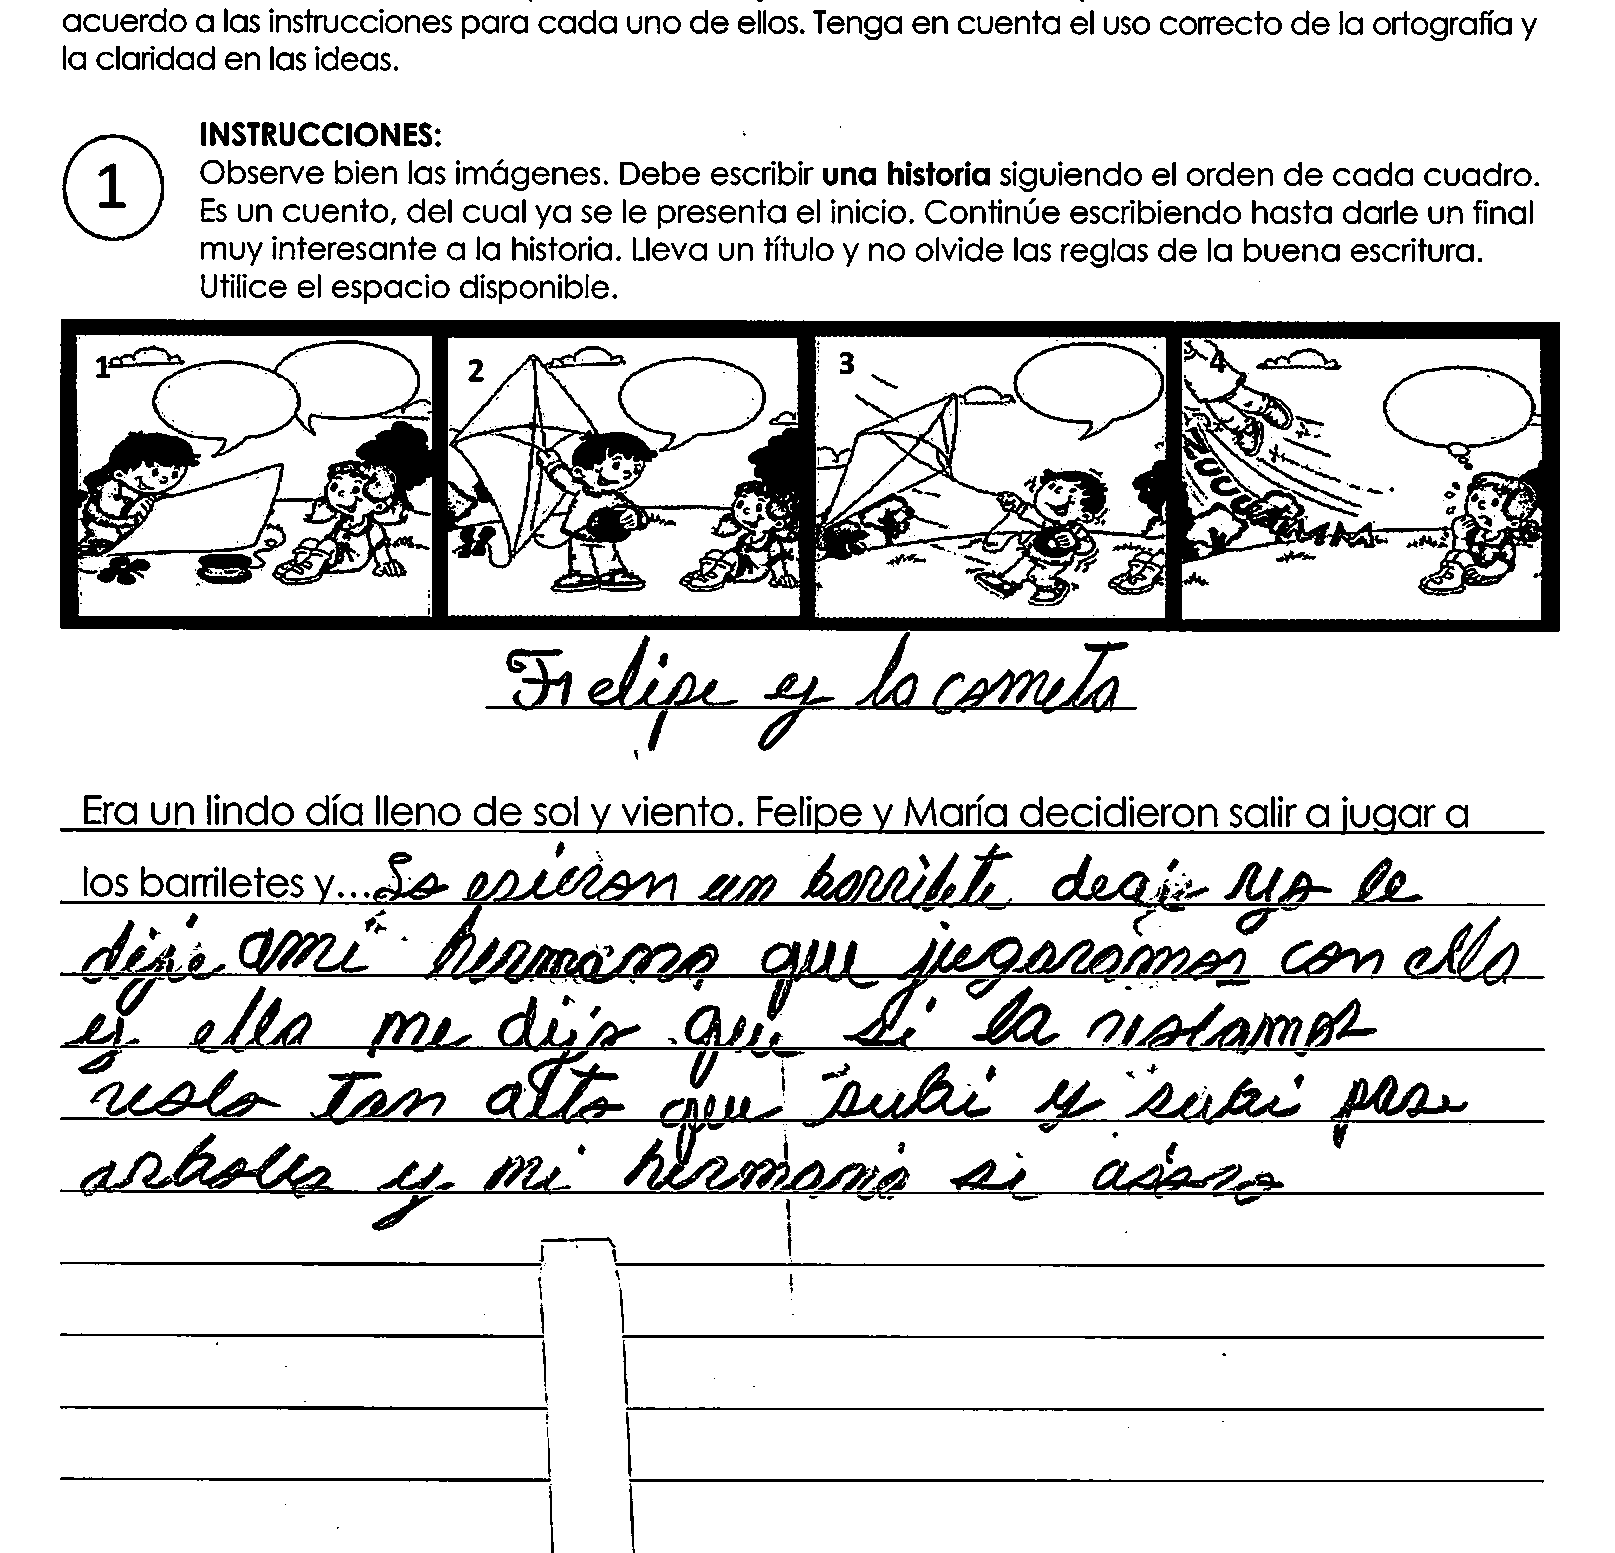 acuerdo a las instrucciones para cada uno de ellos. Tenga en cuenta el uso correcto de la ortografía y
la claridad en las ideas.
1
INSTRUCCIONES:
Observe bien las imágenes. Debe escribir una historia siguiendo el orden de cada cuadro.
Es un cuento, del cual ya se le presenta el inicio. Continúe escribiendo hasta darle un final
muy interesante a la historia. Lleva un título y no olvide las reglas de la buena escritura.
Utilice el espacio disponible.
1 2 3 4
Felipe y la cometa
Era un lindo día lleno de sol y viento. Felipe y María decidieron salir a jugar a
los barriletes y... un barrilete yo le
dije ami hermana que jugaramos con ella
y ella me dijo que si la volamos
volo tan alto que subi y subi pase
arboles y mi hermana si